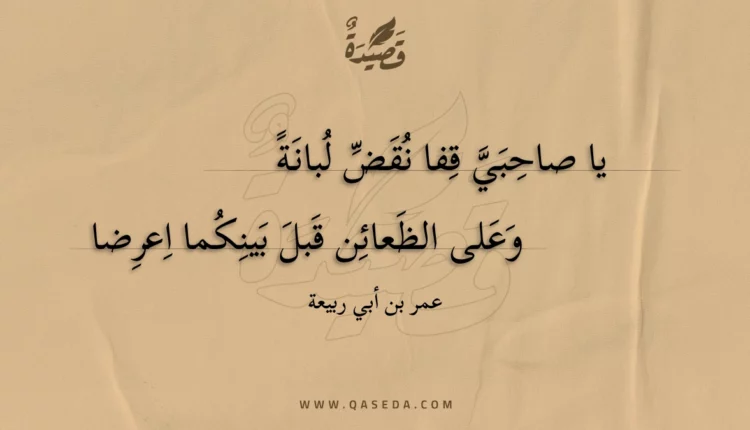 قَصِيْدَةٌ
يا صاحِبَيَّ قِفا نُقَضِّ لُبانَةً
وَعَلى الظَعائِن قَبلَ بَينِكُما اِعرِضا
عمر بن أبي ربيعة
WWW.QASEDA.COM